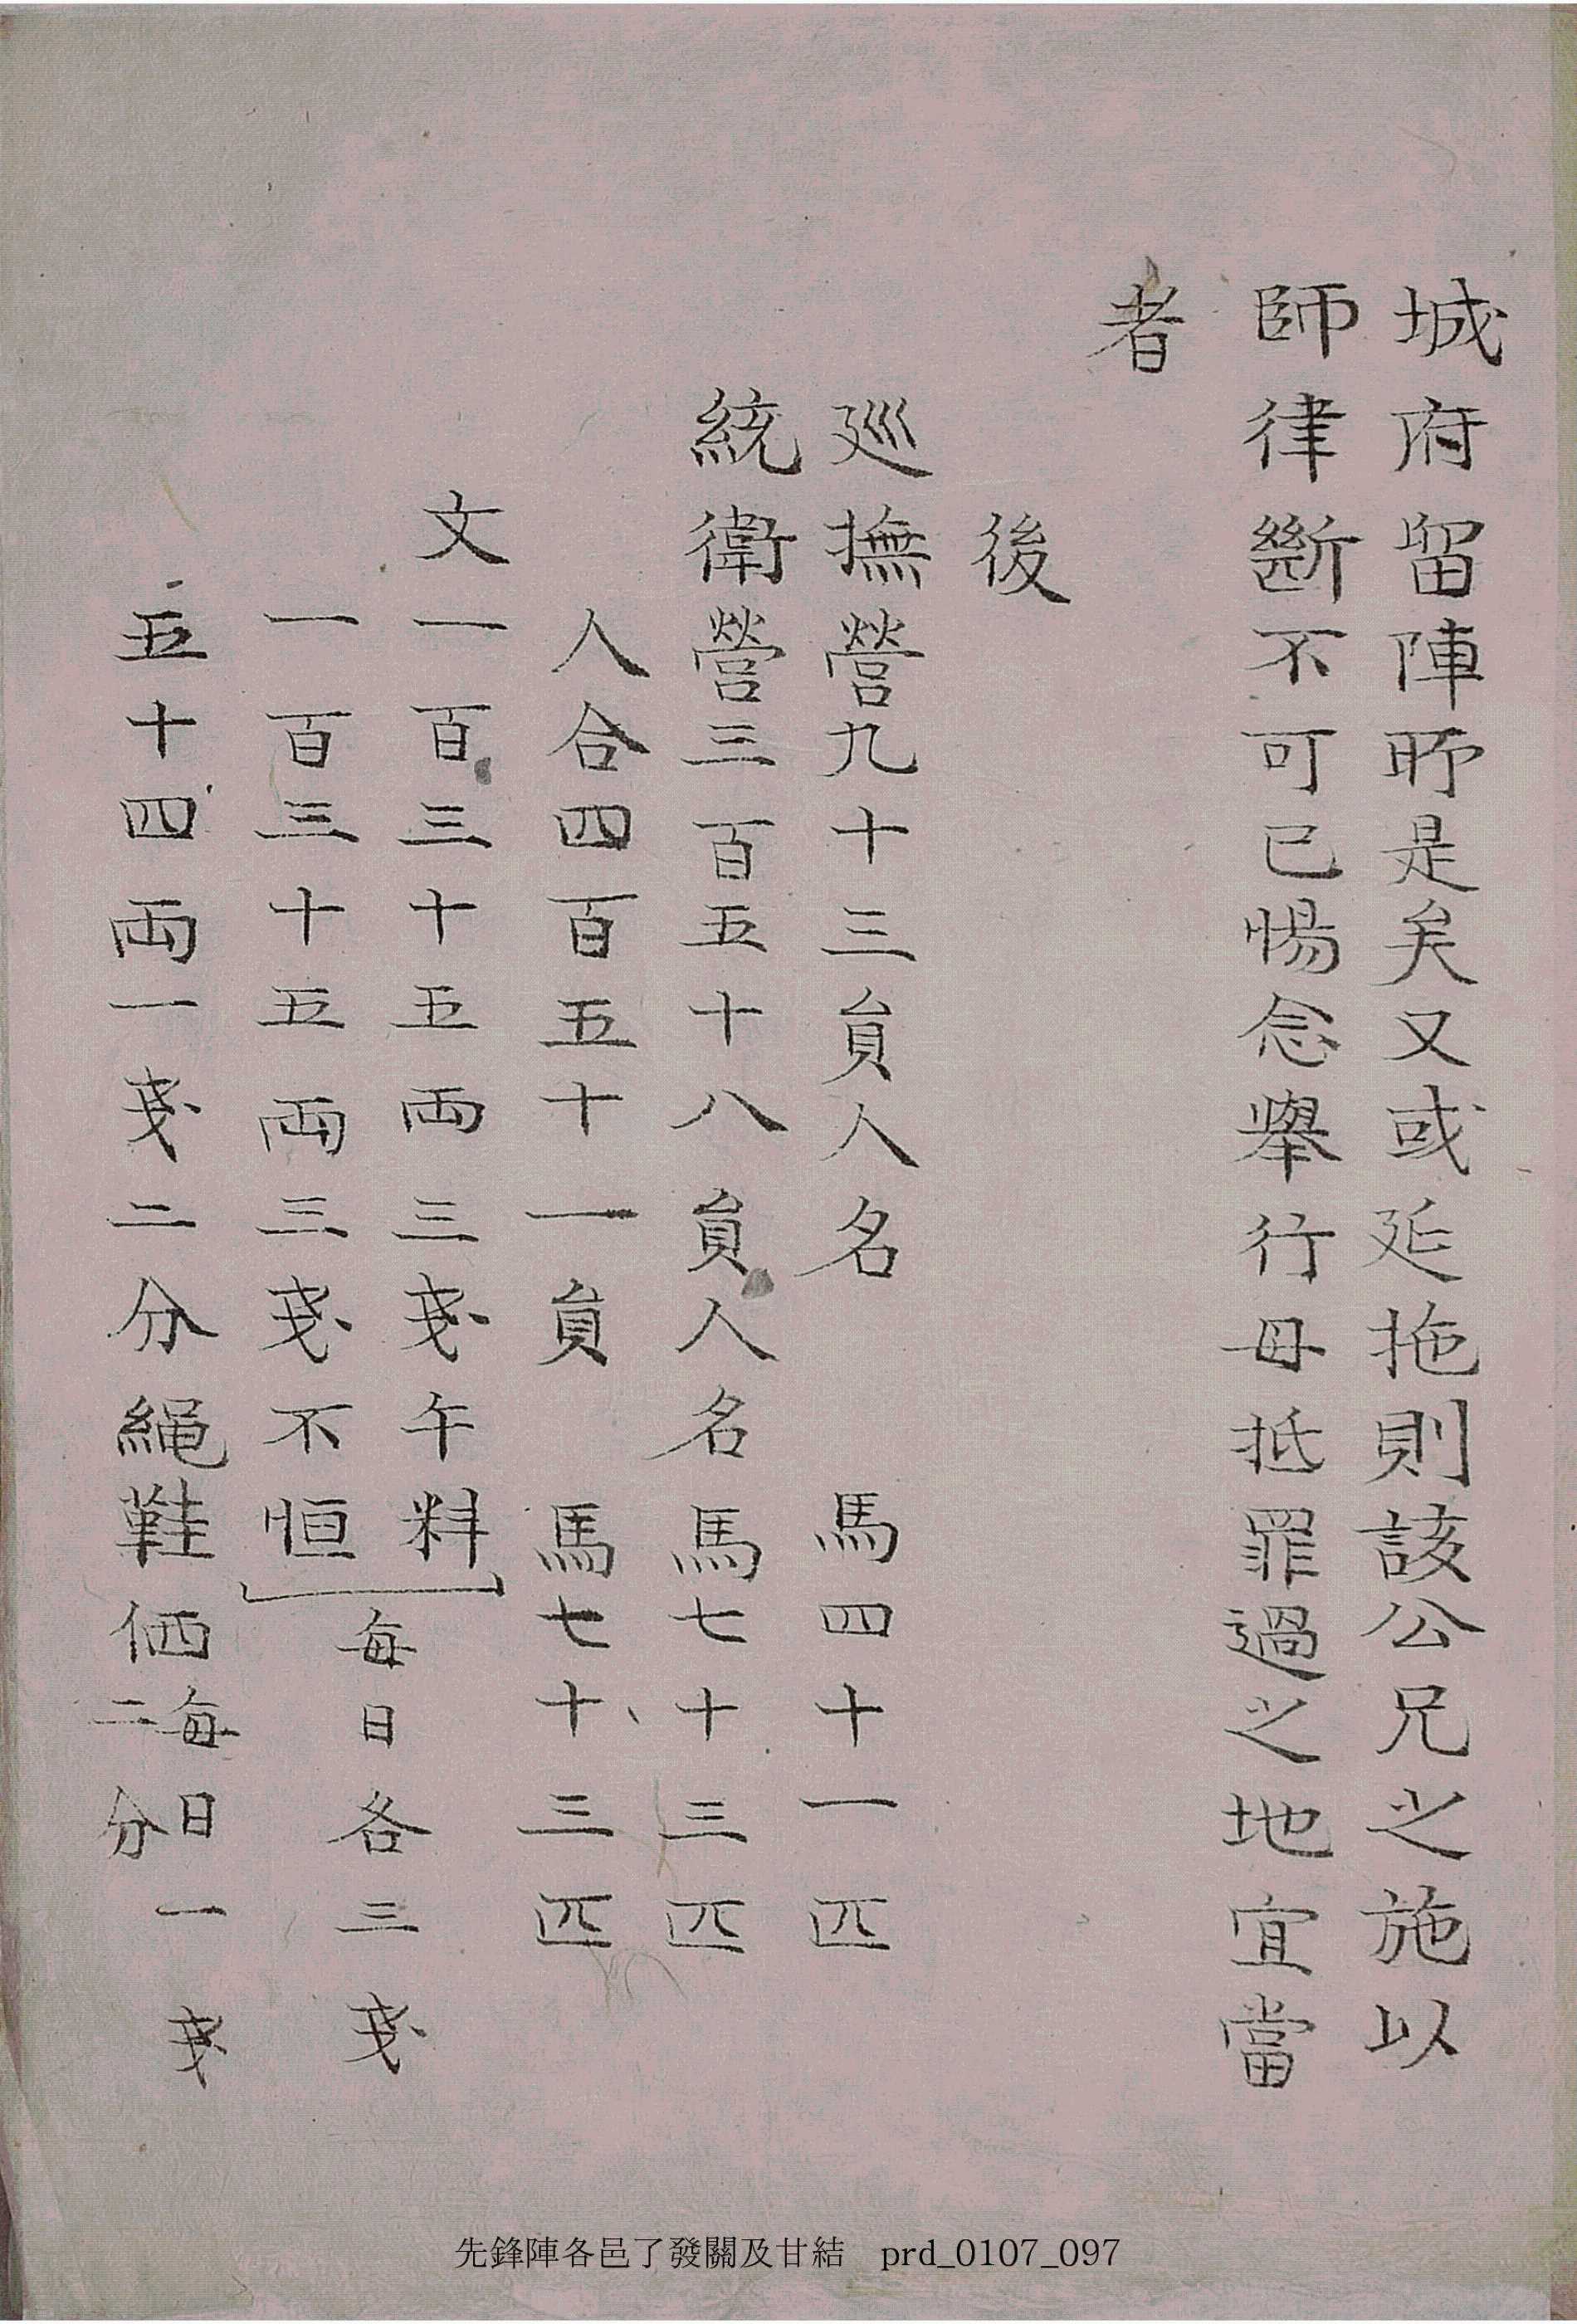 城府留陣所是矣又或延拖則該公兄之施以
師律斷不可已惕念擧行毋抵罪過之地宜當
者
後
巡撫營九十三員人名 馬四十一匹
統衛營三百五十八員人名馬七十三匹
人合四百五十一員 馬七十三匹
文一百三十五両三戔午料
一百三十五両三戔不恒
每日各三戔
五十四両一戔二分繩鞋価每日一戔
二分
先鋒陣各邑了發關及甘結 prd_0107_097